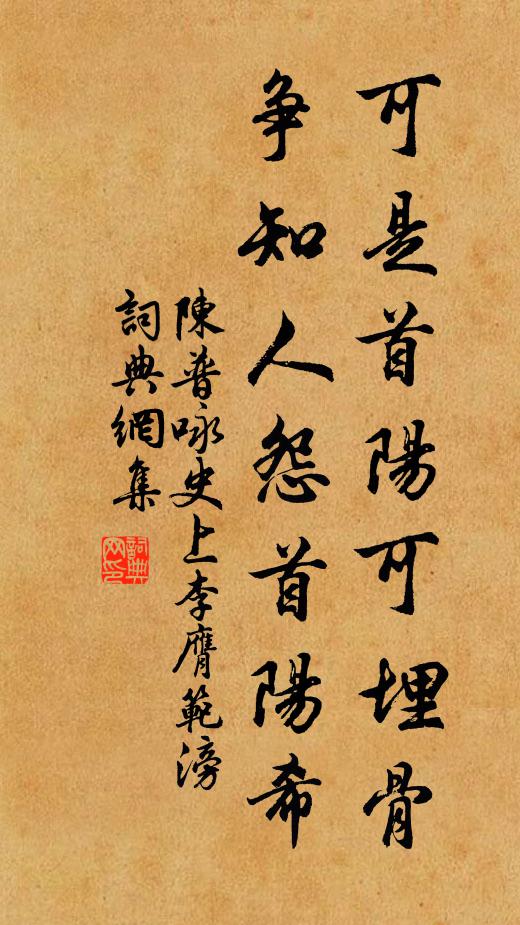 可是首陽可埋骨
争知人怨首陽希
陳普咏史上李膺範滂
詞典網集
詞典网印